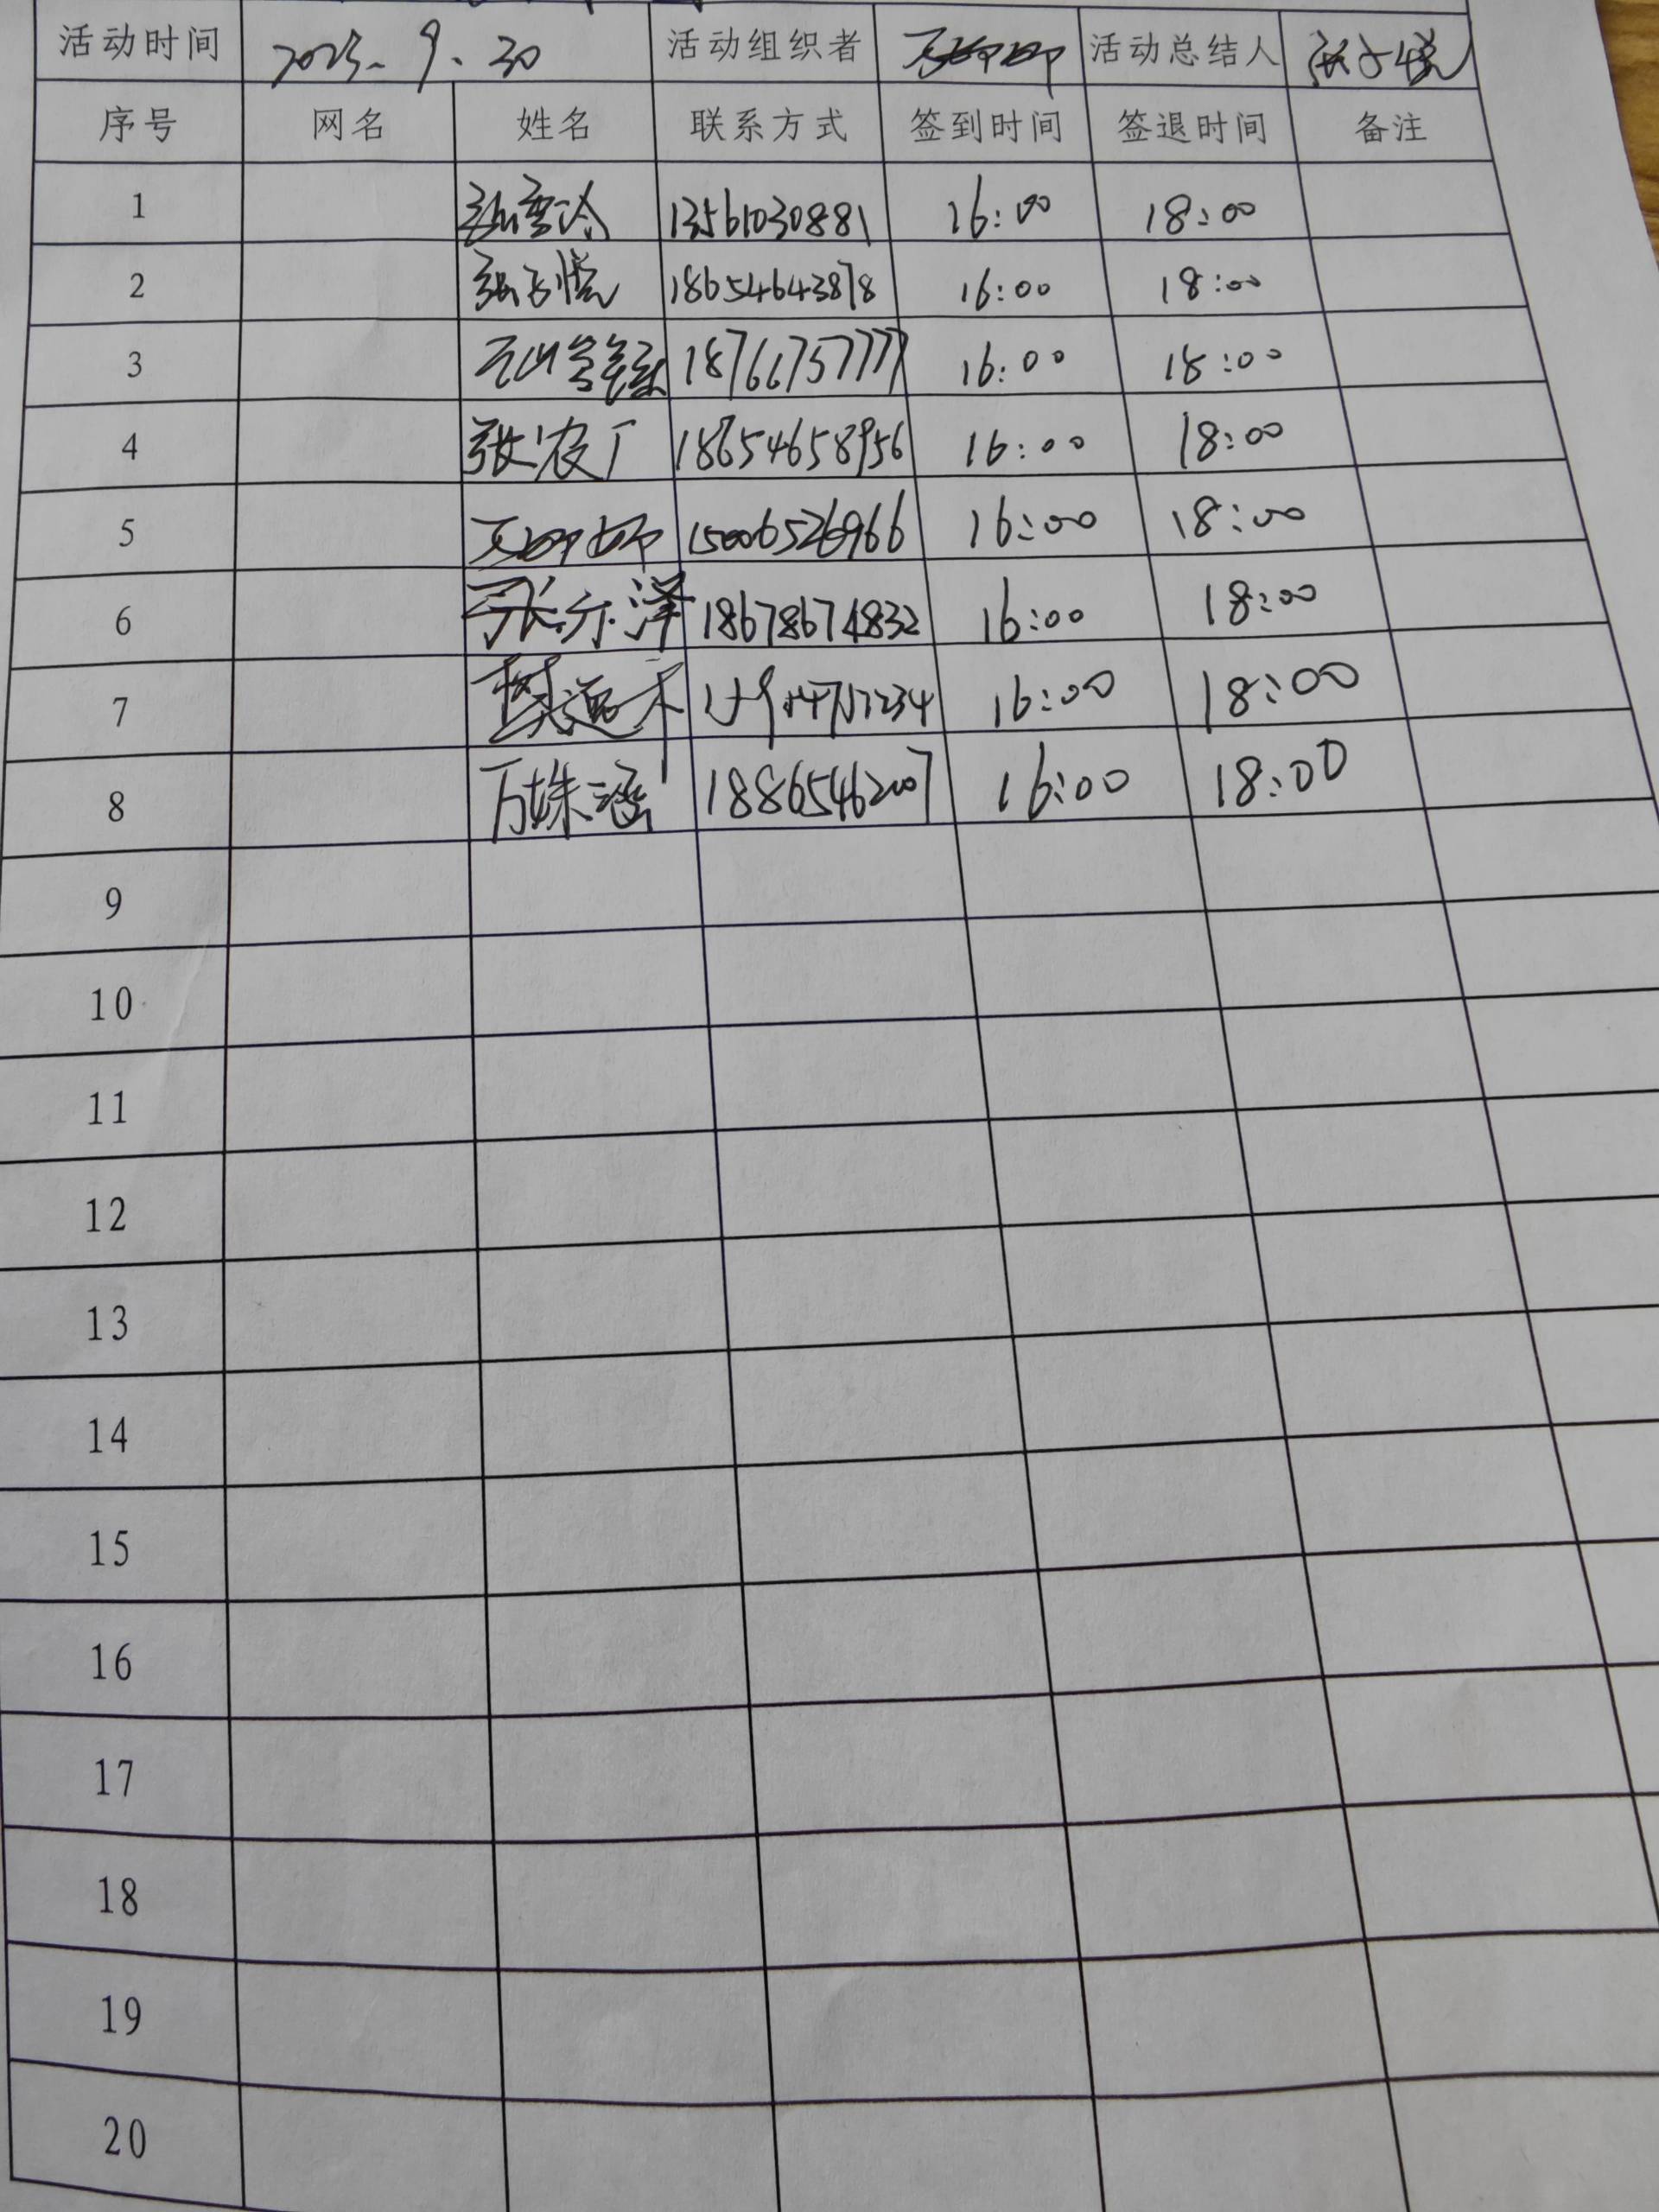 活动时间 2023.9.20 活动组织者 活动总结人 张子悦
序号 网名 姓名 联系方式 签到时间 签退时间 备注
1 13561030881 16:00 18:00
2 张子悦 18654643878 16:00 18:00
3 18766757777 16:00 18:00
4 张农厂 18654658956 16:00 18:00
5 15006526966 16:00 18:00
6 张亦泽 18678674832 16:00 18:00
7 16:00 18:00
8 万姝涵 18865462007 16:00 18:00
9
10
11
12
13
14
15
16
17
18
19
20